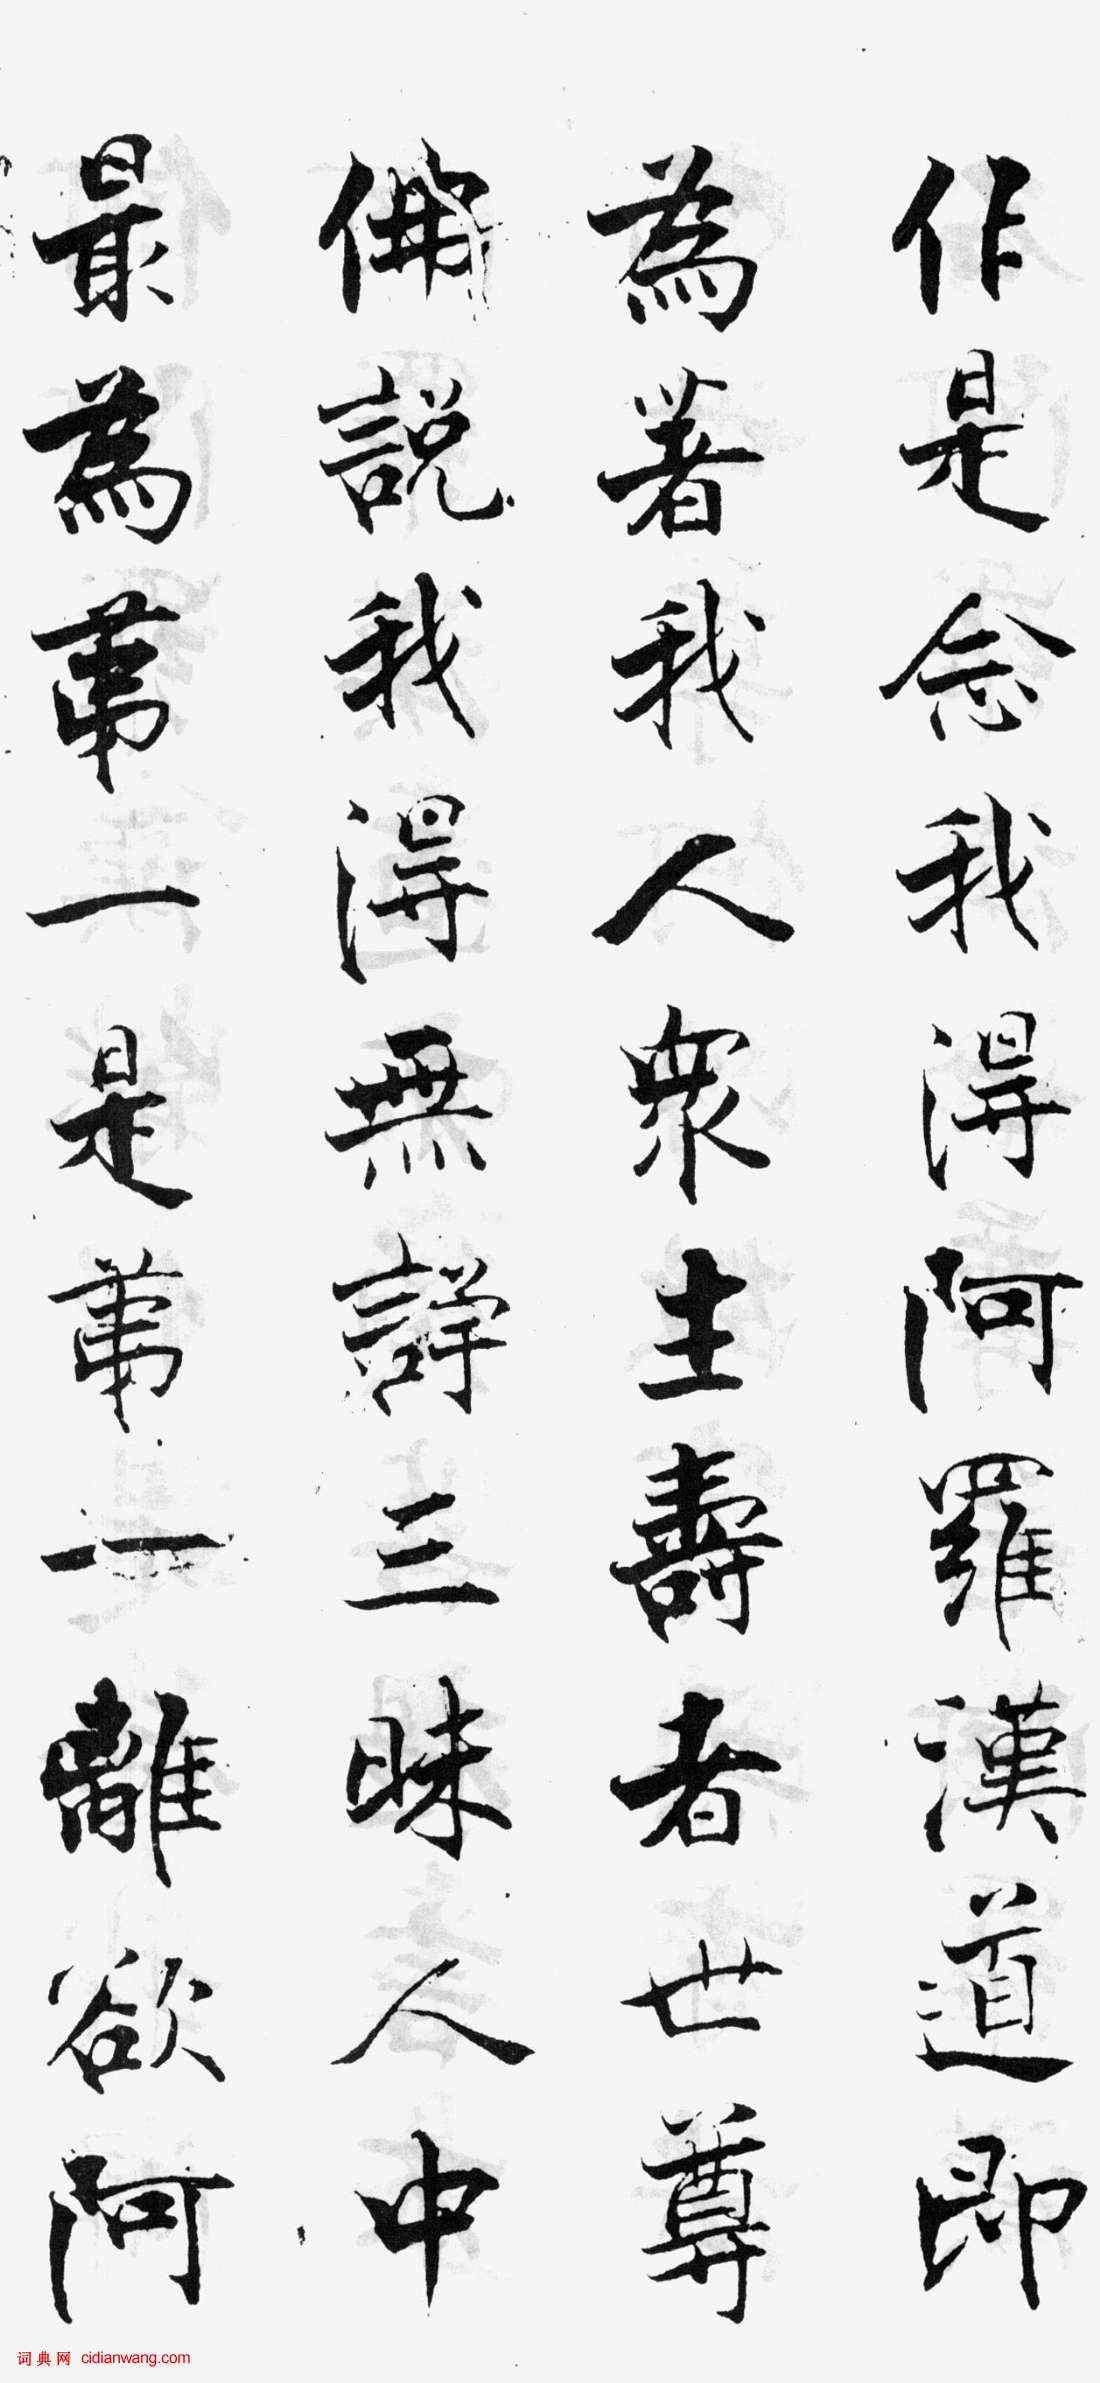 作是念我得阿羅漢道即
為著我人衆生壽者世尊
佛說我得無諍三昧人中
最為第一是第一離欲阿
词典网 cidianwang.com